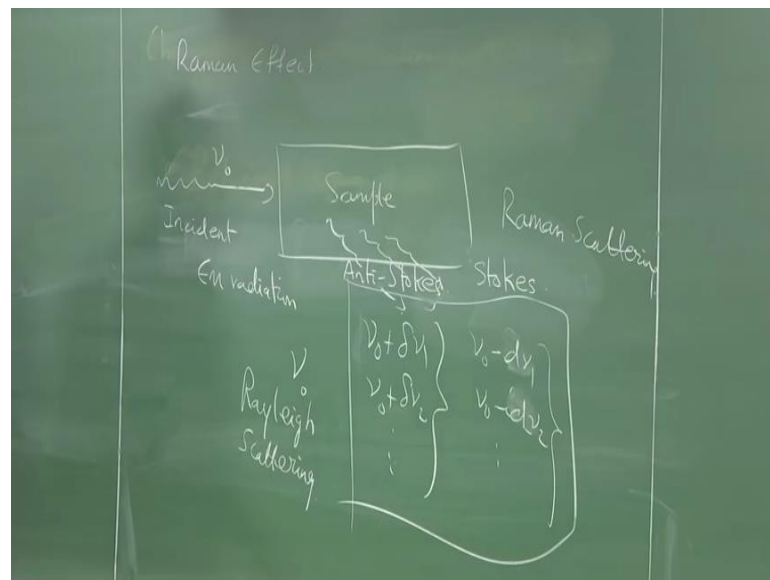 Raman Effect
ν₀
Sample
Incident
Em radiation
Raman Scattering
Anti-Stokes
Stokes.
ν₀
Rayleigh
Scattering
ν₀+δν₁
ν₀-dν₁
ν₀+δν₂
ν₀-dν₂